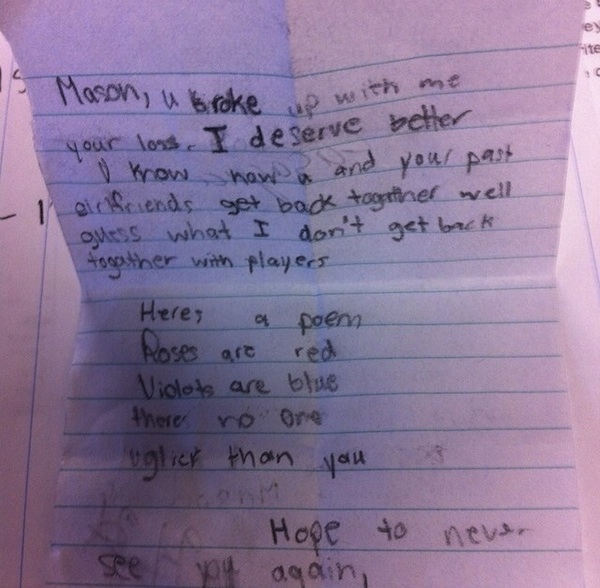 Mason, u broke up with me
your loss. I deserve better
I know how u and your past
girlfriends get back together well
guess what I don't get back
together with players
Heres a poem
Roses are red
Violets are blue
theres no one
uglier than you
Hope to never
see you again,